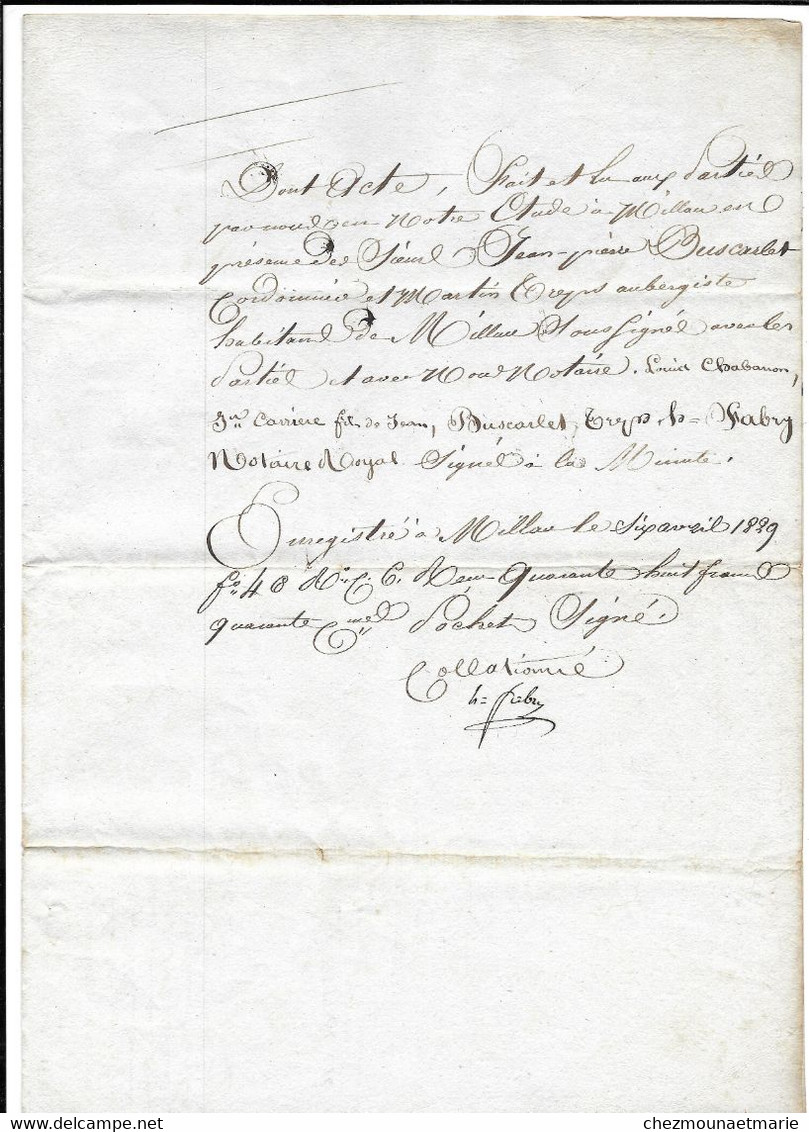 Dont Acte, Fait et lu aux Parties
par nous en Notre Etude à Millau en
présence des Sieurs Jean-pierre Buscarlet
Cordonnier et Martin Treps aubergiste
habitans de Millau Soussignés avec les
Parties et avec Nous Notaire. Louis Chabanon,
Jn Carriere fils de Jean, Buscarlet, Treps, h= Fabry
Notaire Royal Signés à la Minute.
Enregistré à Millau le Six avril 1829
fo 48 Ro C. 6. Reçu Quarante huit francs
quarante Cmes Pochet Signé.
Collationné
h= Fabry
chezmounaetmarie